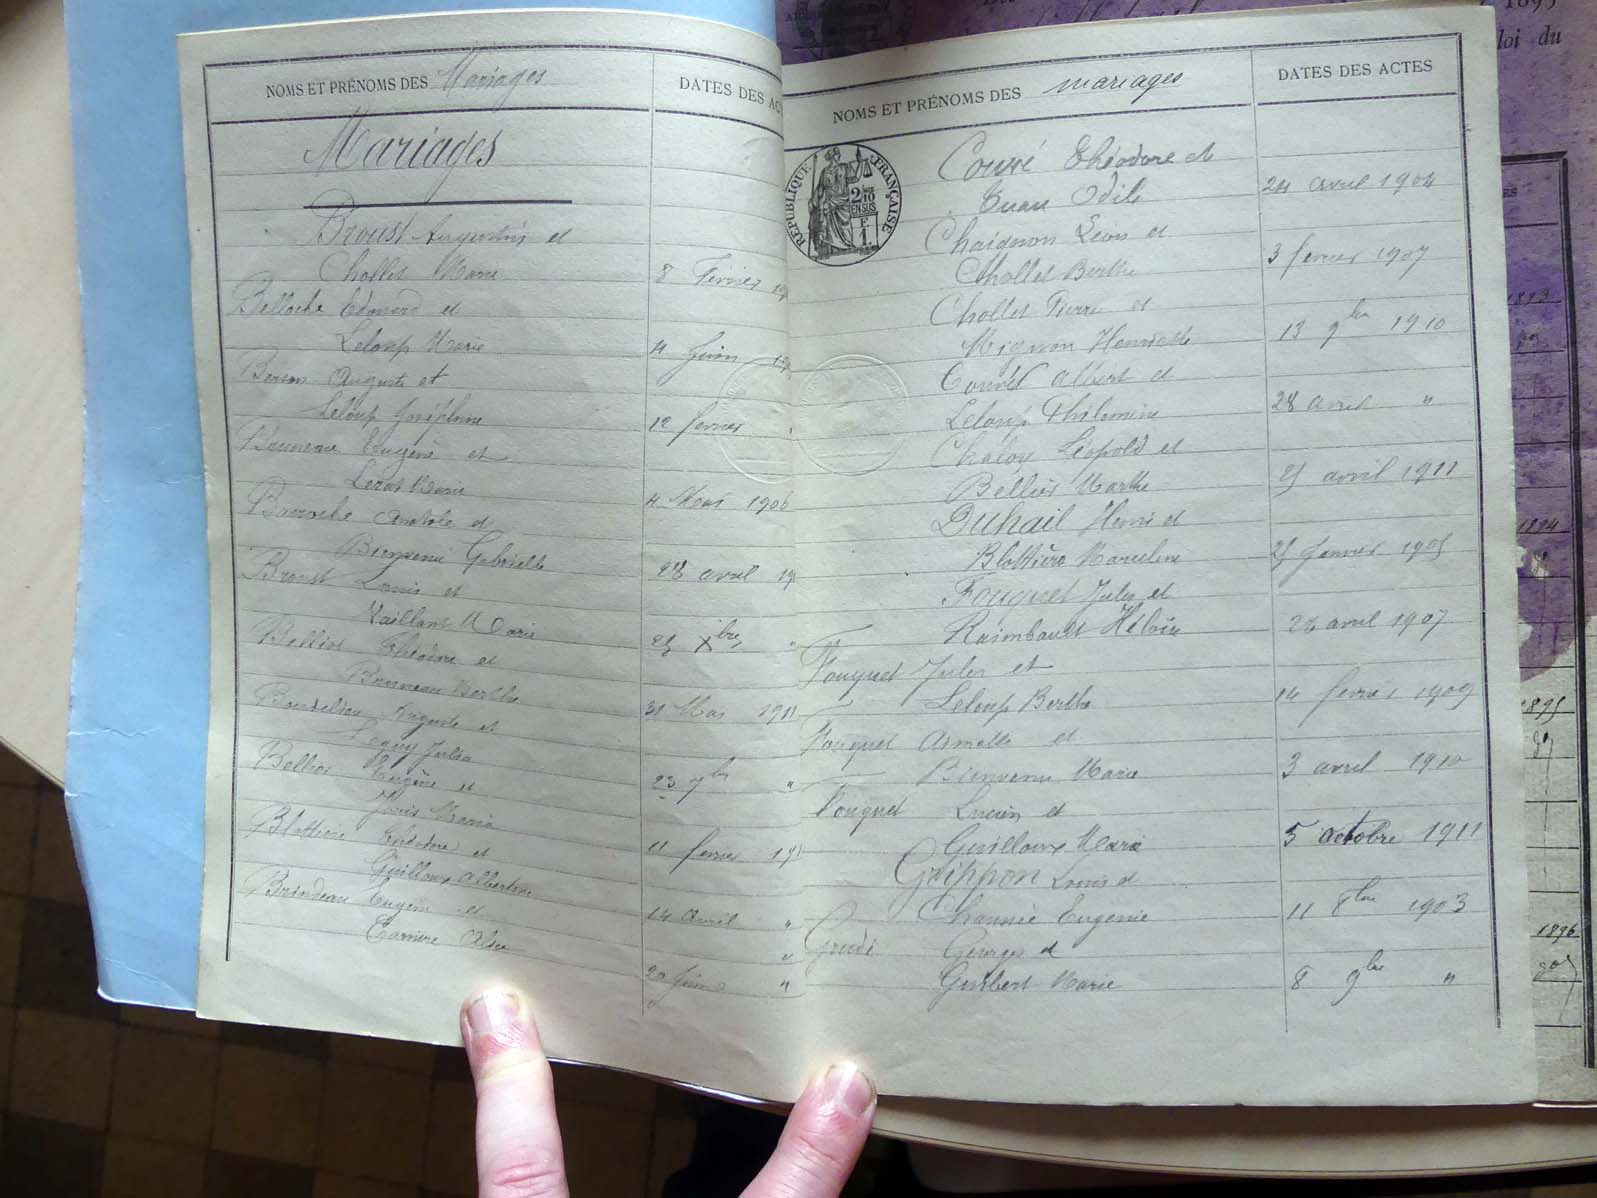 NOMS ET PRÉNOMS DES Mariages
DATES DES AC
Mariages
Broust Augustin et
Chollet Marie 8 Février
Belloche Edouard et
Leloup Marie 4 Juin
Besson Auguste et
Leloup Joséphine 12 février
Bonneau Eugène et
Marie 4 Mars 1906
Barroche Anatole et
Bienvenu Gabrielle 28 avril 19
Broust Louis et
Vaillant Marie 25 Xbre "
Belliot Théodore et
Bonneau Berthe 31 Mai 1911
Auguste et
Julia 23 7bre "
Eugène et
Maria 11 février 191
Blottière Théodore et
Guilloux Albertine 14 avril "
Brindeau Eugène et "
Carriere Alice 20 Juin "
NOMS ET PRÉNOMS DES mariages
DATES DES ACTES
RÉPUBLIQUE FRANÇAISE
2/10 EN SUS
F
1
Couvé Théodore et
Odile 24 avril 1904
Chaignon Léon et
Chollet Berthe 3 février 1907
Chollet Pierre et
Mignon Henriette 13 9bre 1910
Albert et
Leloup Philomène 28 avril "
Léopold et
Marthe 25 avril 1911
Duhail Henri et
Blottière Marceline 25 Janvier 1905
Fouquet Jules et
Raimbault Héloïse 28 avril 1907
Fouquet Jules et
Leloup Berthe 14 février 1909
Fouquet Armelle et
Bienvenu Maria 3 avril 1910
Fouquet Lucien et
Guilloux Maria 5 octobre 1911
Grippon Louis et
Eugenie 11 8bre 1903
Georges et
Guibert Marie 8 9bre "
1895
loi du
1893
1894
1895
1896